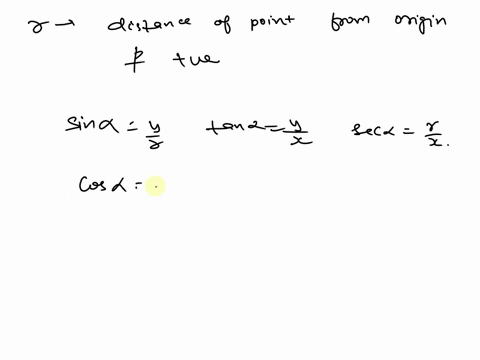 r → distance of point from origin
+ve
sinα = y/r tanα = y/x secα = r/x.
cosα = .